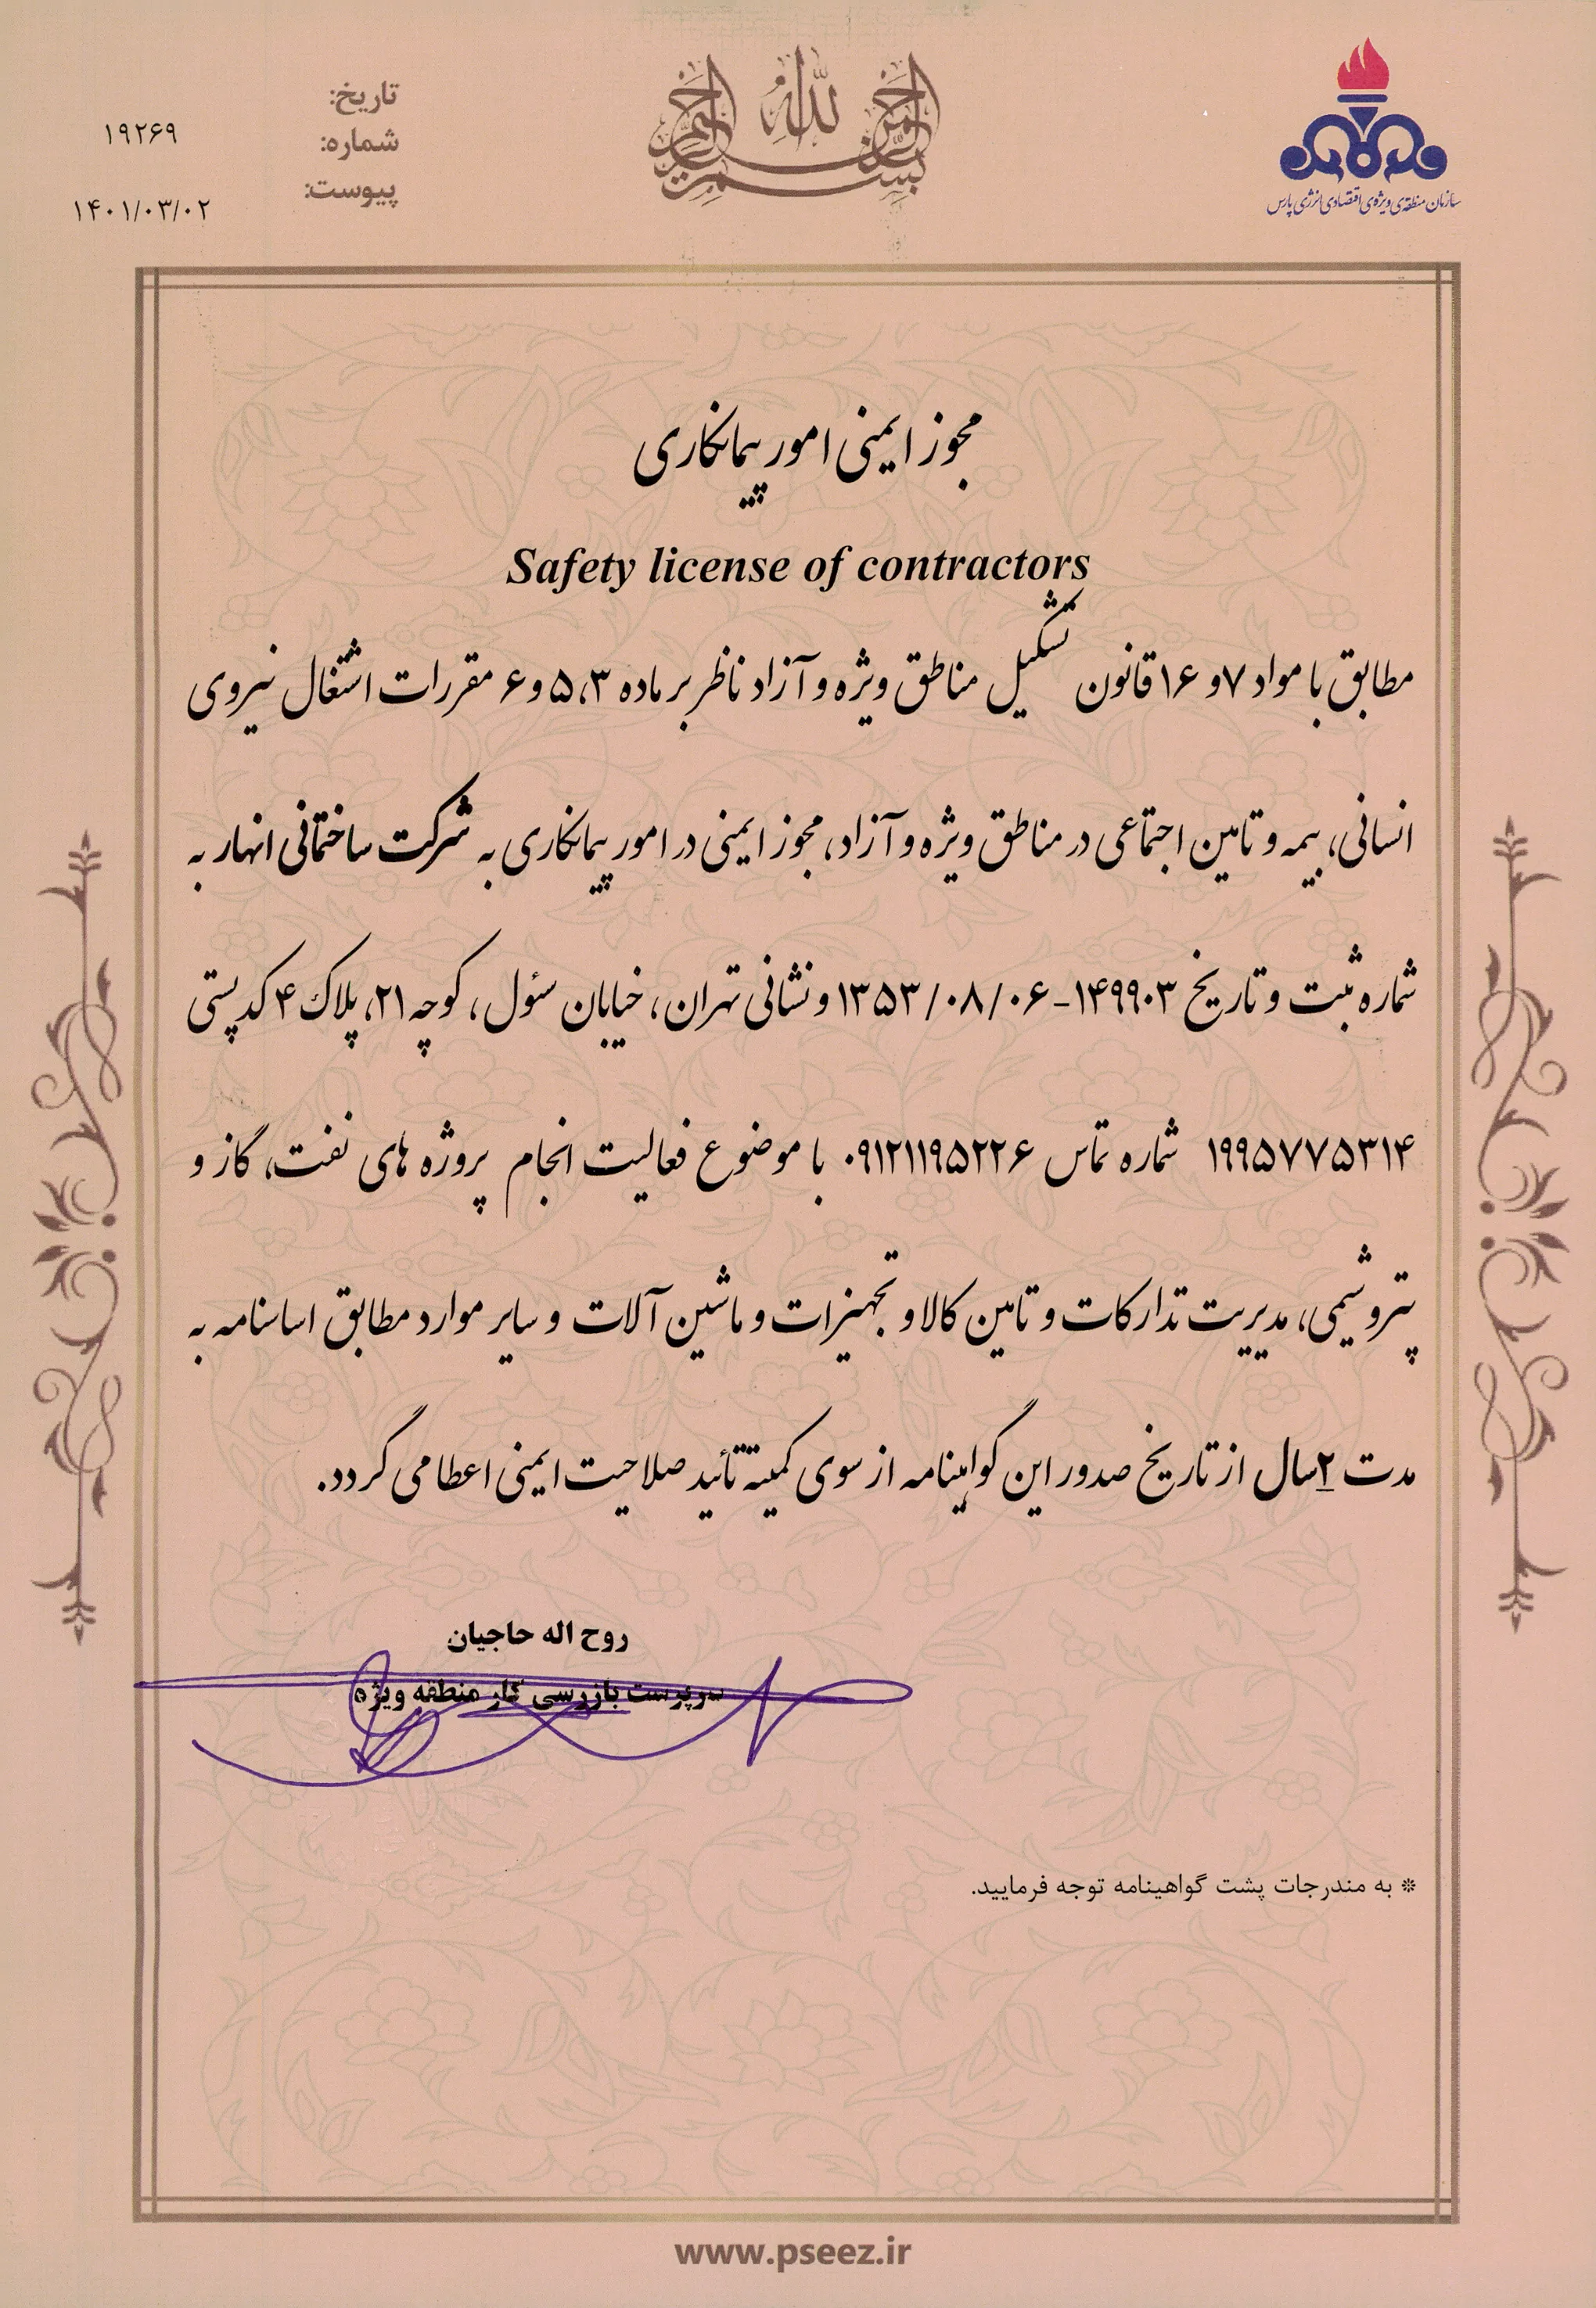 بسم الله الرحمن الرحیم
سازمان منطقه‌ی ویژه‌ی اقتصادی انرژی پارس
تاریخ:
شماره: ۱۹۲۶۹
پیوست:
۱۴۰۱/۰۳/۰۲
مجوز ایمنی امور پیمانکاری
Safety license of contractors
مطابق با مواد ۷ و ۱۶ قانون تشکیل مناطق ویژه و آزاد ناظر بر ماده ۳،۵ و ۶ مقررات اشتغال نیروی
انسانی، بیمه و تامین اجتماعی در مناطق ویژه و آزاد، مجوز ایمنی در امور پیمانکاری به شرکت ساختمانی انهار به
شماره ثبت و تاریخ ۱۴۹۹۰۳-۱۳۵۳/۰۸/۰۶ و نشانی تهران، خیابان سئول، کوچه ۲۱، پلاک ۴ کدپستی
۱۹۹۵۷۷۵۳۱۴ شماره تماس ۰۹۱۲۱۱۹۵۲۲۶ با موضوع فعالیت انجام پروژه های نفت، گاز و
پتروشیمی، مدیریت تدارکات و تامین کالا و تجهیزات و ماشین آلات و سایر موارد مطابق اساسنامه به
مدت ۲ سال از تاریخ صدور این گواهینامه از سوی کمیته تائید صلاحیت ایمنی اعطا می گردد.
روح اله حاجیان
سرپرست بازرسی کار منطقه ویژه
* به مندرجات پشت گواهینامه توجه فرمایید.
www.pseez.ir